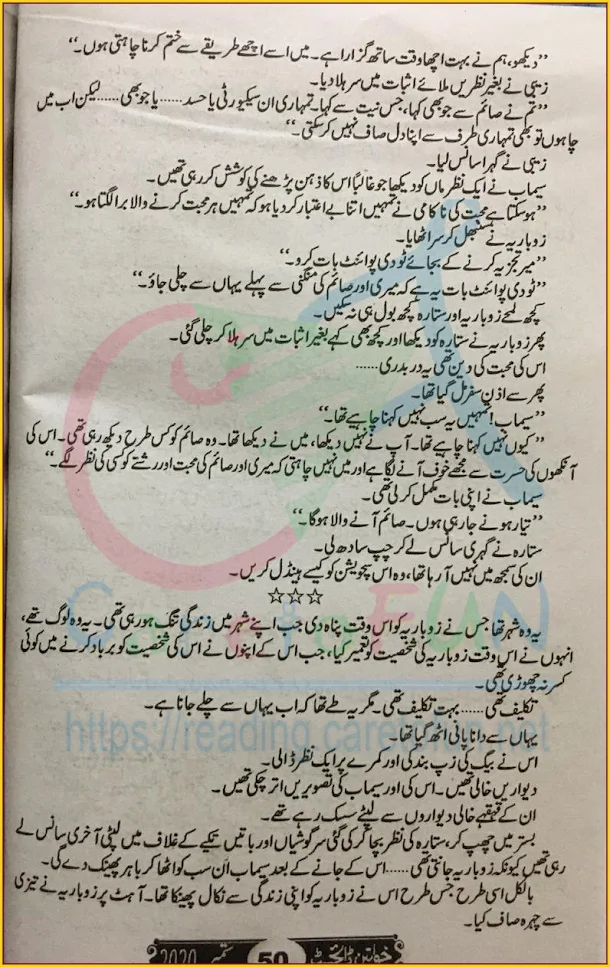 ’’دیکھو، ہم نے بہت اچھا وقت ساتھ گزارا ہے۔ میں اسے اچھے طریقے سے ختم کرنا چاہتی ہوں۔‘‘
زیبی نے بغیر نظریں ملائے اثبات میں سر ہلا دیا۔
’’تم نے صائم سے جو بھی کہا، جس نیت سے کہا۔ تمہاری ان سیکیورٹی یا حسد...... یا جو بھی...... لیکن اب میں
چاہوں تو بھی تمہاری طرف سے اپنا دل صاف نہیں کر سکتی۔‘‘
زیبی نے گہرا سانس لیا۔
سیماب نے ایک نظر ماں کو دیکھا جو غالباً اس کا ذہن پڑھنے کی کوشش کر رہی تھیں۔
’’ہو سکتا ہے محبت کی ناکامی نے تمہیں اتنا بے اعتبار کر دیا ہو کہ تمہیں ہر محبت کرنے والا برا لگتا ہو۔‘‘
زوباریہ نے سنبھل کر سر اٹھایا۔
’’میرا تجزیہ کرنے کے بجائے ٹو دی پوائنٹ بات کرو۔‘‘
’’ٹو دی پوائنٹ بات یہ ہے کہ میری اور صائم کی منگنی سے پہلے یہاں سے چلی جاؤ۔‘‘
کچھ لمحے زوباریہ اور ستارہ کچھ بول ہی نہ سکیں۔
پھر زوباریہ نے ستارہ کو دیکھا اور کچھ بھی کہے بغیر اثبات میں سر ہلا کر چلی گئی۔
اس کی محبت کی دین تھی یہ در بدری......
پھر سے اذنِ سفر مل گیا تھا۔
’’سیماب! تمہیں یہ سب نہیں کہنا چاہیے تھا۔‘‘
’’کیوں نہیں کہنا چاہیے تھا۔ آپ نے نہیں دیکھا، میں نے دیکھا تھا۔ وہ صائم کو کس طرح دیکھ رہی تھی۔ اس کی
آنکھوں کی حسرت سے مجھے خوف آنے لگا ہے اور میں نہیں چاہتی کہ میری اور صائم کی محبت اور رشتے کو کسی کی نظر لگے۔‘‘
سیماب نے اپنی بات مکمل کر لی تھی۔
’’تیار ہونے جا رہی ہوں۔ صائم آنے والا ہو گا۔‘‘
ستارہ نے گہری سانس لے کر چپ سادھ لی۔
ان کی سمجھ میں نہیں آ رہا تھا، وہ اس سچویشن کو کیسے ہینڈل کریں۔
☆☆☆
یہ وہ شہر تھا جس نے زوباریہ کو اس وقت پناہ دی جب اپنے شہر میں زندگی تنگ ہو رہی تھی۔ یہ وہ لوگ تھے،
انہوں نے اس وقت زوباریہ کی شخصیت کو تعمیر کیا، جب اس کے اپنوں نے اس کی شخصیت کو برباد کرنے میں کوئی
کسر نہ چھوڑی تھی۔
تکلیف تھی...... بہت تکلیف تھی۔ مگر یہ طے تھا کہ اب یہاں سے چلے جانا ہے۔
یہاں سے دانا پانی اٹھ گیا تھا۔
اس نے بیگ کی زپ بند کی اور کمرے پر ایک نظر ڈالی۔
دیواریں خالی تھیں۔ اس کی اور سیماب کی تصویریں اتر چکی تھیں۔
ان کے قہقہے خالی دیواروں سے لپٹے سسک رہے تھے۔
بستر میں چھپ کر، ستارہ کی نظر بچا کر کی گئی سرگوشیاں اور باتیں تکیے کے غلاف میں لپٹی آخری سانس لے
رہی تھیں کیونکہ زوباریہ جانتی تھی...... اس کے جانے کے بعد سیماب ان سب کو اٹھا کر باہر پھینک دے گی۔
بالکل اسی طرح جس طرح اس نے زوباریہ کو اپنی زندگی سے نکال پھینکا تھا۔ آہٹ پر زوباریہ نے تیزی
سے چہرہ صاف کیا۔
خواتین ڈائجسٹ 50 ستمبر 2020
https://reading.carefofun.net